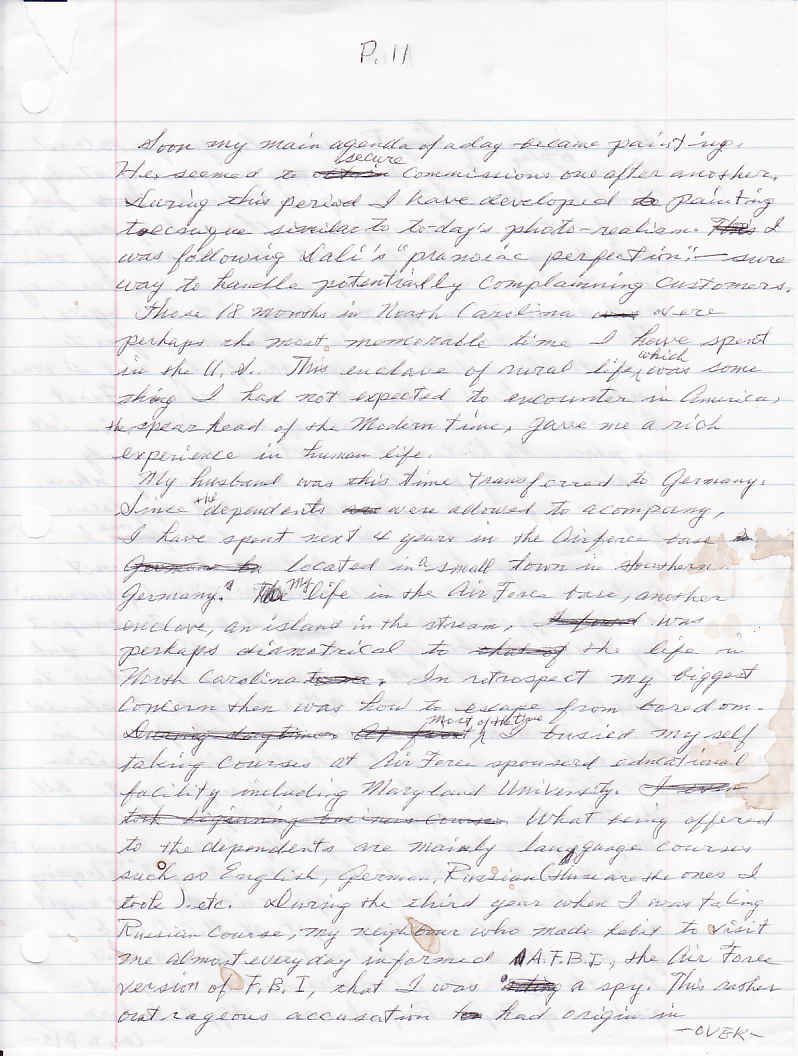 P. 11
Soon my main agenda of a day became painting.
He seemed to secure commissions one after another.
During this period I have developed painting
tecngue similar to to-day's photo-realism. I
was following Dali's "pranoiac perfection" – sure
way to handle potentially complainning customers.
These 18 months in North Carolina were
perhaps the most memorable time I have spent
in the U.S. This enclave of rural life, which was some
thing I had not expected to encounter in America,
the spearhead of the Modern time, gave me a rich
experience in human life.
My husband was this time transferred to Germany.
Since the dependents were allowed to acompany,
I have spent next 4 years in the Airforce base
located in a small town in southern
Germany. My life in the Air Force base, another
enclave, an island in the stream, was
perhaps diametrical to the life in
North Carolina. In retrospect my biggest
concern then was how to escape from boredom.
most of the time I busied my self
taking courses at Air Force spouserd educational
facility including Maryland University.
What being offered
to the dependents are mainly language courses
such as English, German, Russian (these are the ones I
took). etc. During the third year when I was taking
Russian Course, my neighbour who made habit to visit
me almost everyday informed A.F.B.I, the Air Force
version of F.B.I, that I was a spy. This rather
outrageous accusation had origin in
—OVER—